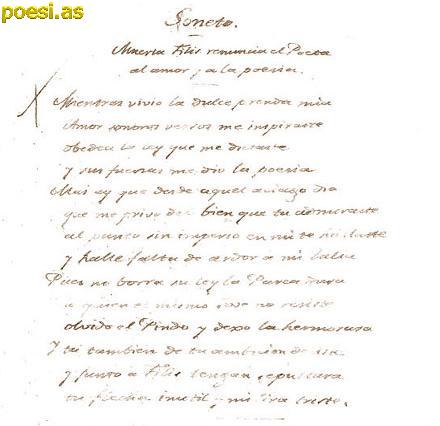 poesi.as
Soneto.
Muerta Filis renuncia el Poeta
al amor, y a la poesia.
Mientras vivio la dulce prenda mia
Amor sonoros versos me inspiraste
obedeci la ley que me dictaste
y sus fuerzas me dio la poesia
Mas ay que desde aquel aciago dia
que me privo del bien que tu admiraste
al punto sin imperio en mi te hallaste
y hallé falta de ardor a mi Talia
Pues no borra su ley la Parca dura
a quien el mismo Jove no resiste
olvido el Pindo y dexo la hermosura
Y tu tambien de tu ambicion desiste
y junto a Filis tengan sepultura
tu flecha inutil, y mi lira triste.